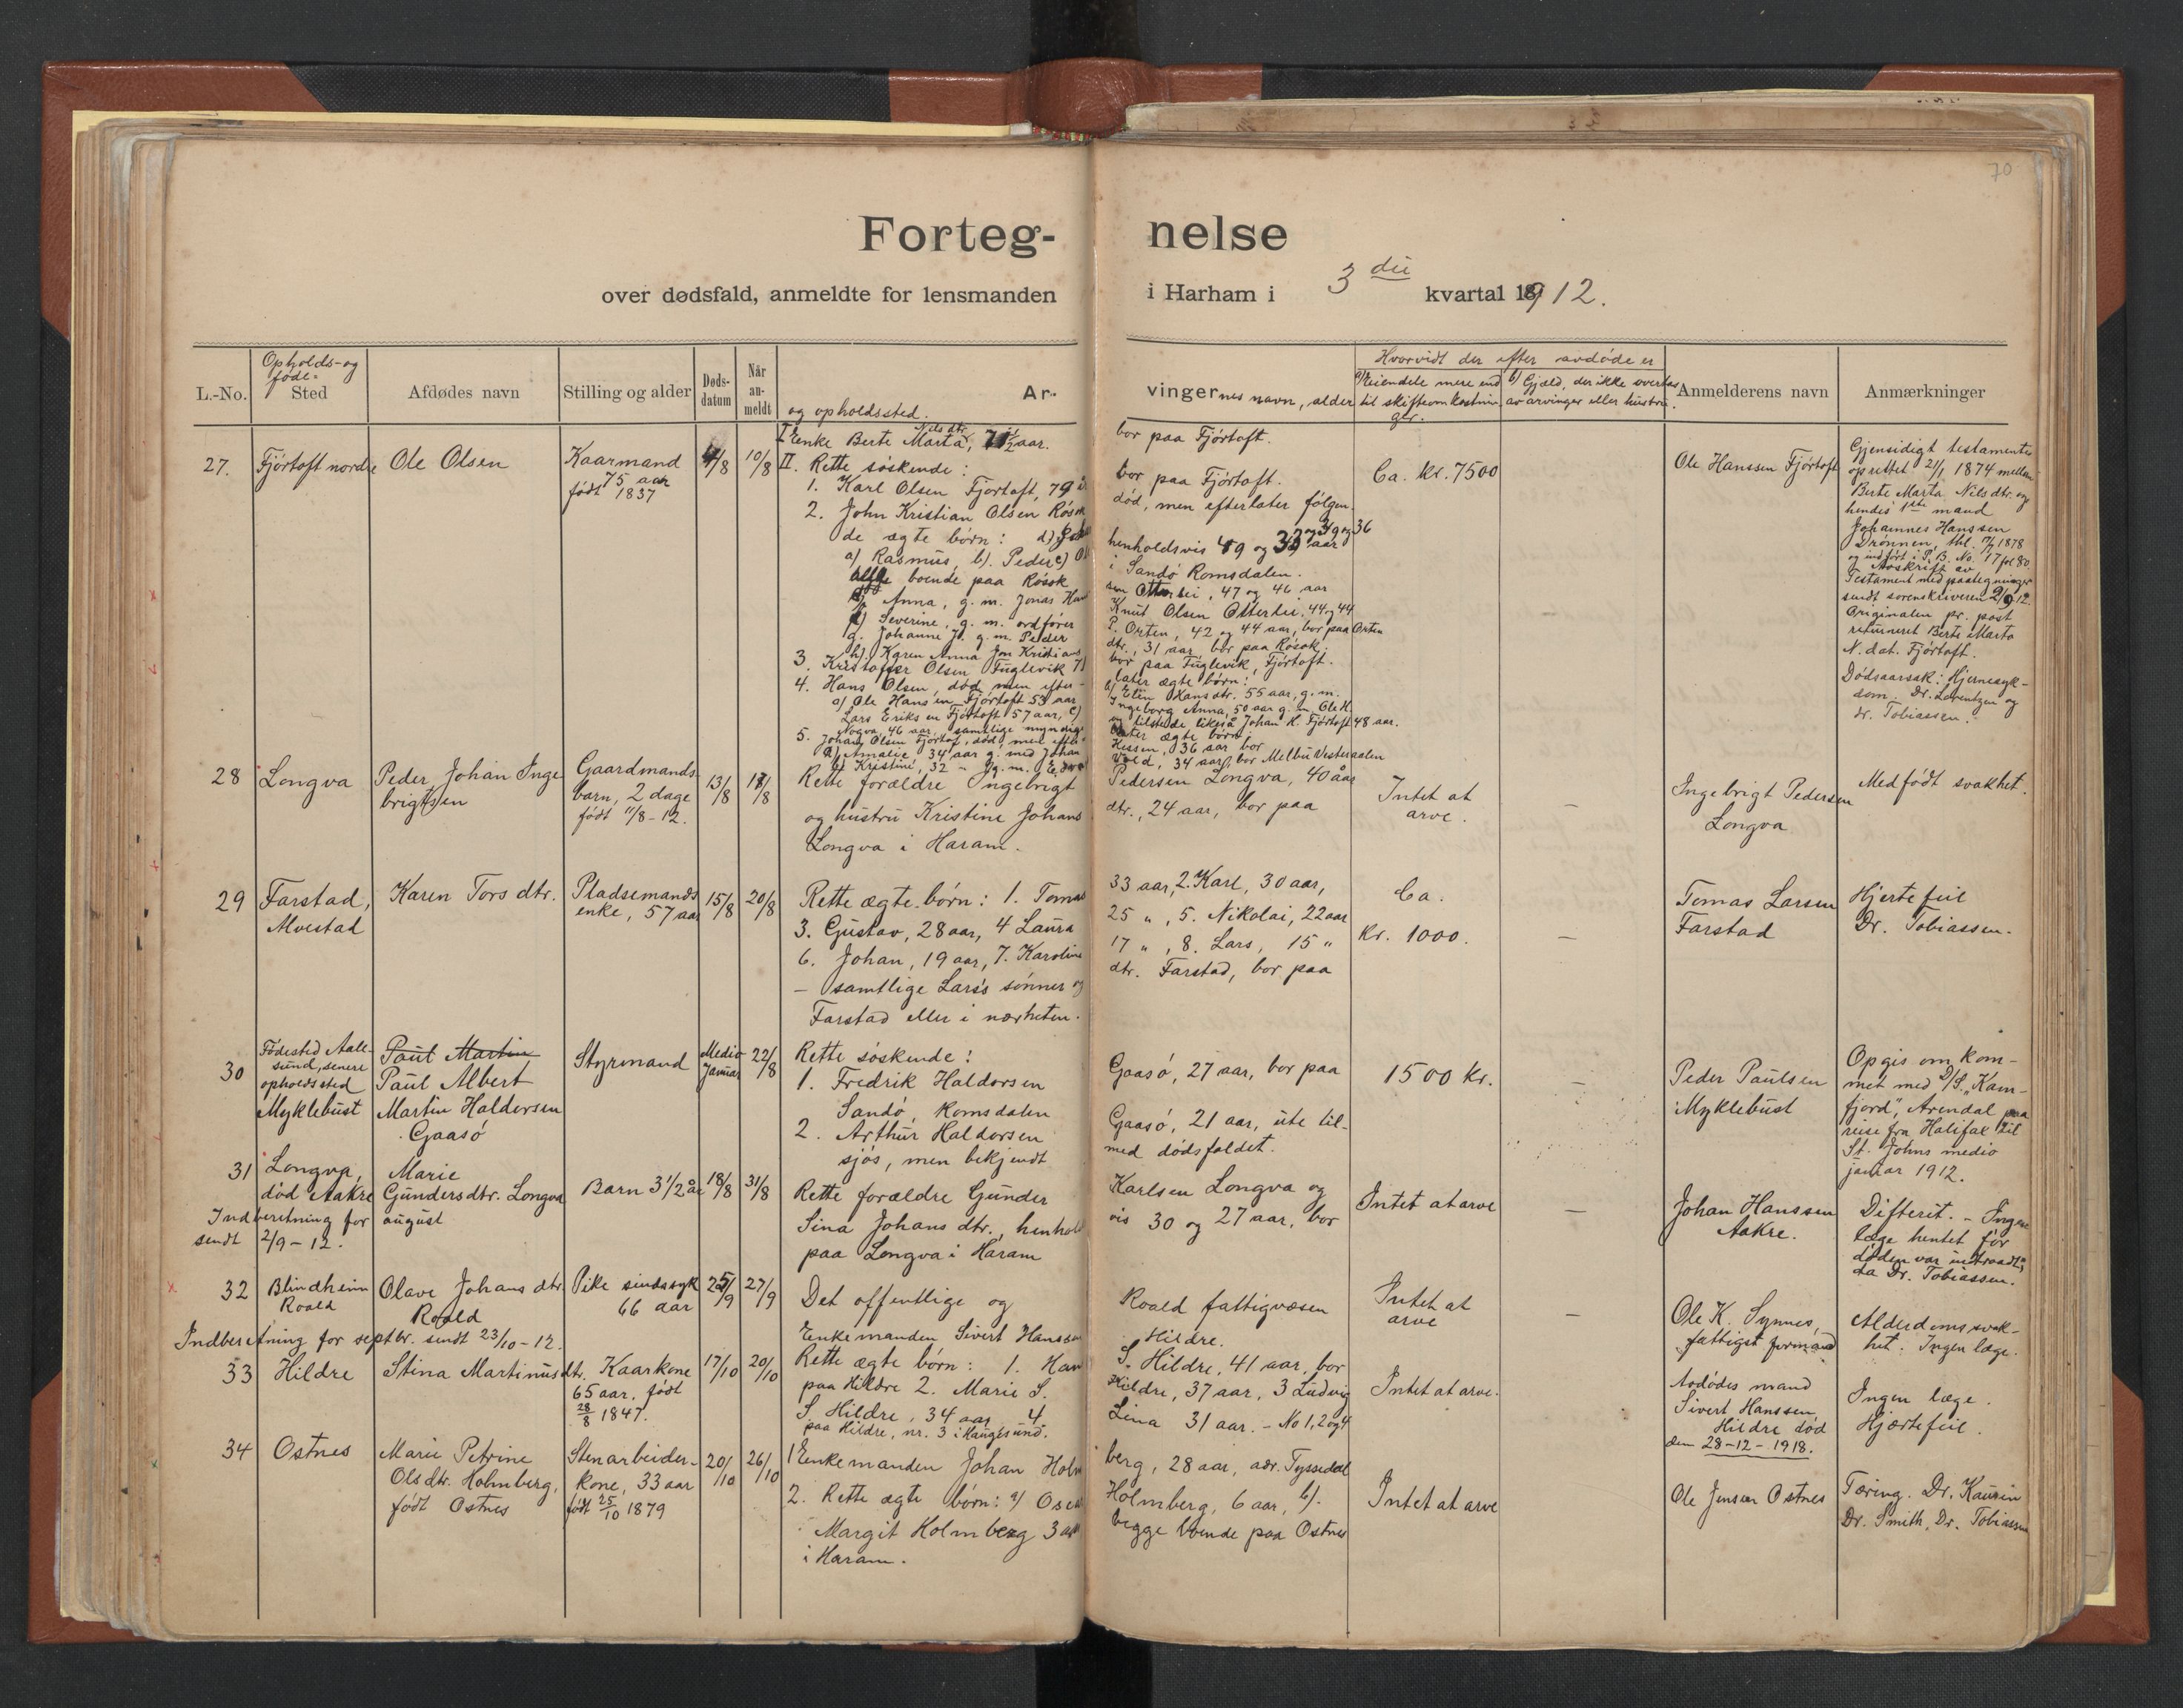 70
Forteg- nelse
over dødsfald, anmeldte for lensmanden i Harham i 3die kvartal 1912.
L.-No.
Opholds- og føde- Sted
Afdødes navn
Stilling og alder
Døds- datum
Når an- meldt
Ar- vingernes navn, alder
og opholdssted.
Hvorvidt der efter avdøde er
a) Eiendele mere end til skifteomkostninger.
b) Gjæld, der ikke overtas av arvinger eller hustru.
Anmelderens navn
Anmærkninger
27. Fjörtoft nordre
Ole Olsen
Kaarmand
75 aar
født 1837
4/8
10/8
I Enke Berte Marta Nilsdtr, 71 1/2 aar. bor paa Fjörtoft.
II. Rette söskende:
1. Karl Olsen Fjörtoft, 79 bor paa Fjörtoft.
2. John Kristian Olsen Rösok död, men efterlater fölgen
de ægte börn:
a) Rasmus, b). Peder henholdsvis 49 og
boende paa Rösok i Sandö Romsdalen.
Anna, g. m. Jonas 47 og 46 aar
Severine, g. m. ordförer Knut Olsen Otterlei, 44 og 44
g. Johanne J. g. m. Peder P. Orten, 42 og 44 aar, bor paa Orten
h). Karen Anna Jon Kristians dtr., 31 aar bor paa Rösok.
3. Kristoffer Olsen Fuglevik bor paa Fuglevik, Fjörtoft.
4. Hans Olsen, död, men efter- later ægte börn:
a) Ole Hansen Fjörtoft 53 aar b) Elen Hansdtr. 55 aar, g. m.
Lars Eriksen Fjörtoft 57 aar, c) Ingeborg Anna, 50 aar g. m. Ole H.
Nogva, 46 aar, samtlige myndige og tilstede likesaa Johan H. Fjörtoft 48 aar.
5. Johan Olsen Fjörtoft, död, men efter- later ægte börn:
a) Amalie 34 aar g. med Johan Hessen, 36 aar bor
b) Kristine, 32 " g. m. Vold, 34 aar, bor Melbu Vesteraalen
Ca. kr. 7500
Ole Hanssen Fjörtoft
Gjensidigt testamente
oprettet 21/1 1874 mellem
Berte Marta Nilsdtr. og
hendes 1ste mand
Johannes Hanssen
Drönnen, thl. 1878
og indfört i P. B. No. 17 fol 80.
Avskrift av
Testament med paategninger
sendt sorenskriveren 2/9 12.
Originalen pr. post
returneret Berte Marta
N. dat. Fjörtoft.
Dödsaarsak: Hjernesyk-
dom. Dr. Lorentzen og
dr. Tobiassen.
28 Longva
Peder Johan Inge
brigtsen
Gaardmands
barn, 2 dage
født 11/8-12.
13/8
17/8
Rette forældre Ingebrigt Pedersen Longva, 40 aar
og hustru Kristine Johans dtr., 24 aar, bor paa
Longva i Haram.
Intet at
arve.
–
Ingebrigt Pedersen
Longva
Medfödt svakhet.
29 Farstad,
Alvestad
Karen Torsdtr.
Pladsemands
enke, 57 aar
15/8
20/8
Rette ægte börn: 1. Tomas 33 aar, 2. Karl, 30 aar,
3. Gustav, 28 aar, 4 Laura 25 ", 5. Nikolai, 22 aar
6. Johan, 19 aar, 7. Karoline 17 ", 8. Lars, 15 "
– samtlige Lars's sönner og dtr. Farstad, bor paa
Farstad eller i nærheten.
Ca.
Kr. 1000.
–
Tomas Larsen
Farstad
Hjertefeil
Dr. Tobiassen.
30 Födested Aale-
sund, senere
opholdssted
Myklebust
Paul Martin
Paul Albert
Martin Haldorsen
Gaasö
Styrmand
Medio
Januar
22/8
Rette söskende:
1. Fredrik Haldorsen Gaasö, 27 aar, bor paa
Sandö, Romsdalen
2. Arthur Haldorsen Gaasö, 21 aar, ute til-
sjös, men bekjendt med dödsfaldet.
1500 kr.
–
Peder Paulsen
Myklebust
Opgis omkom-
met med D/S. "Kam-
fjord", Arendal paa
reise fra Halifax til
St. Johns medio
januar 1912.
31 Longva,
död Aakre
Marie
Gundersdtr. Longva
Barn 3 1/2 år
18/8
31/8
Rette forældre Gunder Karlsen Longva og
Sina Johansdtr., henholds vis 30 og 27 aar, bor
paa Longva i Haram
Intet at arve
–
Johan Hanssen
Aakre.
Difterit. – Ingen
læge hentet för
döden var indtraadt,
da Dr. Tobiassen.
Indberetning for august
sendt 2/9-12.
x 32 Blindheim
Roald
Olave Johansdtr.
Roald
Pike sindssyk
66 aar
25/9
27/9
Det offentlige og Roald fattigvæsen
Intet at
arve
–
Ole K. Synnes,
fattigst formand
Alderdomssvak-
het. Ingen læge.
Indberetning for septbr. sendt 23/10-12.
33 Hildre
Stina Martinusdtr.
Kaarkone
65 aar, født
28/8 1847.
17/10
20/10
Enkemanden Sivert Hanssen Hildre.
Rette ægte börn: 1. Han S. Hildre, 41 aar, bor
paa Hildre 2. Marie S. Hildre, 37 aar, 3 Ludvig
S. Hildre, 34 aar, 4. Lina 31 aar. – No 1, 2 og 4
paa Hildre, nr. 3 i Haugesund.
Intet at arve.
Avdödes mand
Sivert Hanssen
Hildre död
den 28-12-1918.
Ingen læge.
Hjærtefeil.
34 Ostnes
Marie Petrine
Olsdtr. Holmberg,
født Ostnes
Stenarbeider-
kone, 33 aar
født 25/10 1879
20/10
26/10
1 Enkemanden Johan Holm berg, 28 aar, adr. Tyssedal
2. Rette ægte börn: a) Oscar Holmberg, 6 aar, b).
Margit Holmberg 3 aar begge boende paa Ostnes
i Haram.
Intet at arve
Ole Jensen Ostnes
Tæring. Dr. Kaurin
Dr. Smith, Dr. Tobiassen